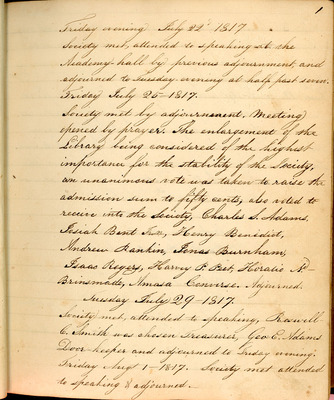 1
Friday evening July 22 1817
Society met, attended to speaking at the
Academy-hall by previous adjournment, and
adjourned to Tuesday evening at half past seven.
Friday July 25-1817.
Society met by adjournment. Meeting
opened by prayer. The enlargement of the
Library being considered of the highest
importance for the stability of the Society,
an unanimous vote was taken to raise the
admission sum to fifty cents, also voted to
receive into the Society, Charles S. Adams,
Josiah Bent Jun., Henry Benedict,
Andrew Rankin, Jonas Burnham,
Isaac Rogers, Harvey P. Peet, Horatio N.
Brinsmade, Amasa Converse. Adjourned.
Tuesday July 29-1817.
Society met, attended to speaking, Roswell
C. Smith was chosen Treasurer, Geo. E. Adams
Door-keeper and adjourned to Friday evening.
Friday Augt 1-1817. Society met attended
to speaking & adjourned.